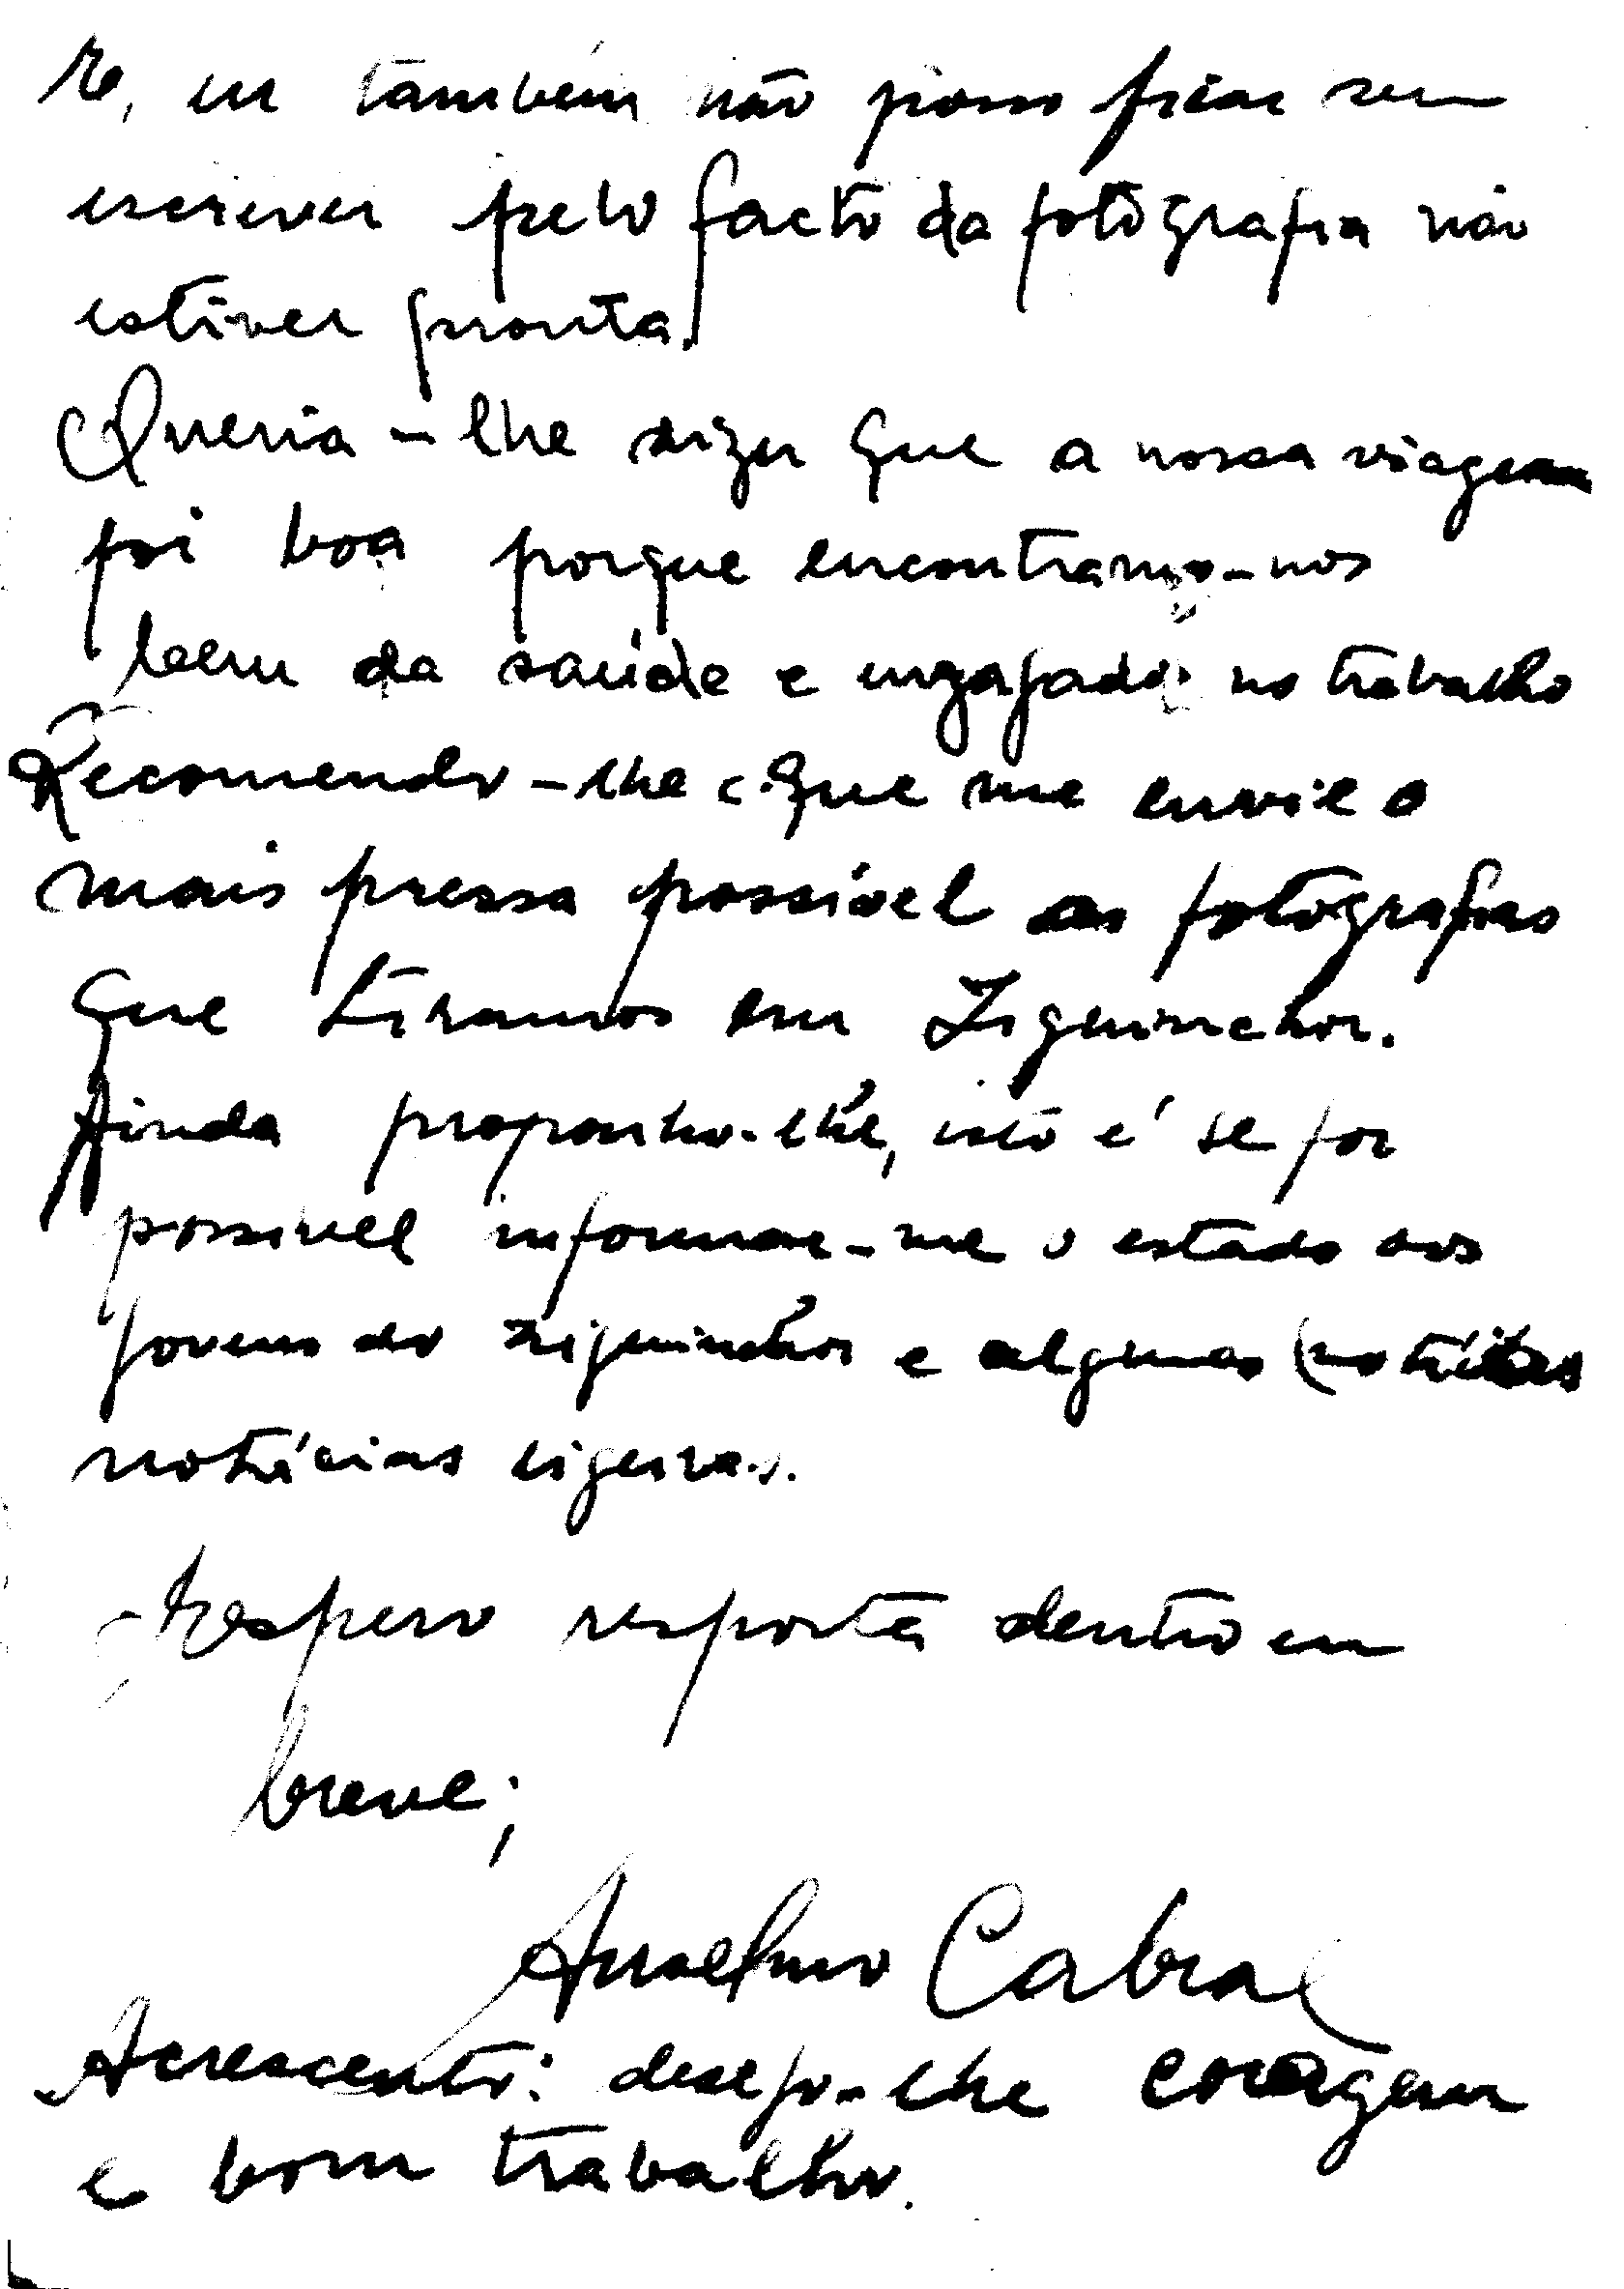 re, eu também não posso ficar sem
escrever pelo facto da fotografia não
estiver pronta.
Queria-lhe dizer que a nossa viagem
foi boa porque encontramo-nos
bem da saúde e engajados no trabalho
Recomendo-lhe que me envie o
mais pressa possível as fotografias
que tiramos em Ziguinchor.
Ainda proponho-lhe, isto é se for
possivel informar-me o estado dos
jovens do ziguinchor e algumas (notícias
notícias ligeiras.
Espero resposta dentro em
breve;
Anselmo Cabral
Acrescento: desejo-lhe coragem
e bom trabalho.